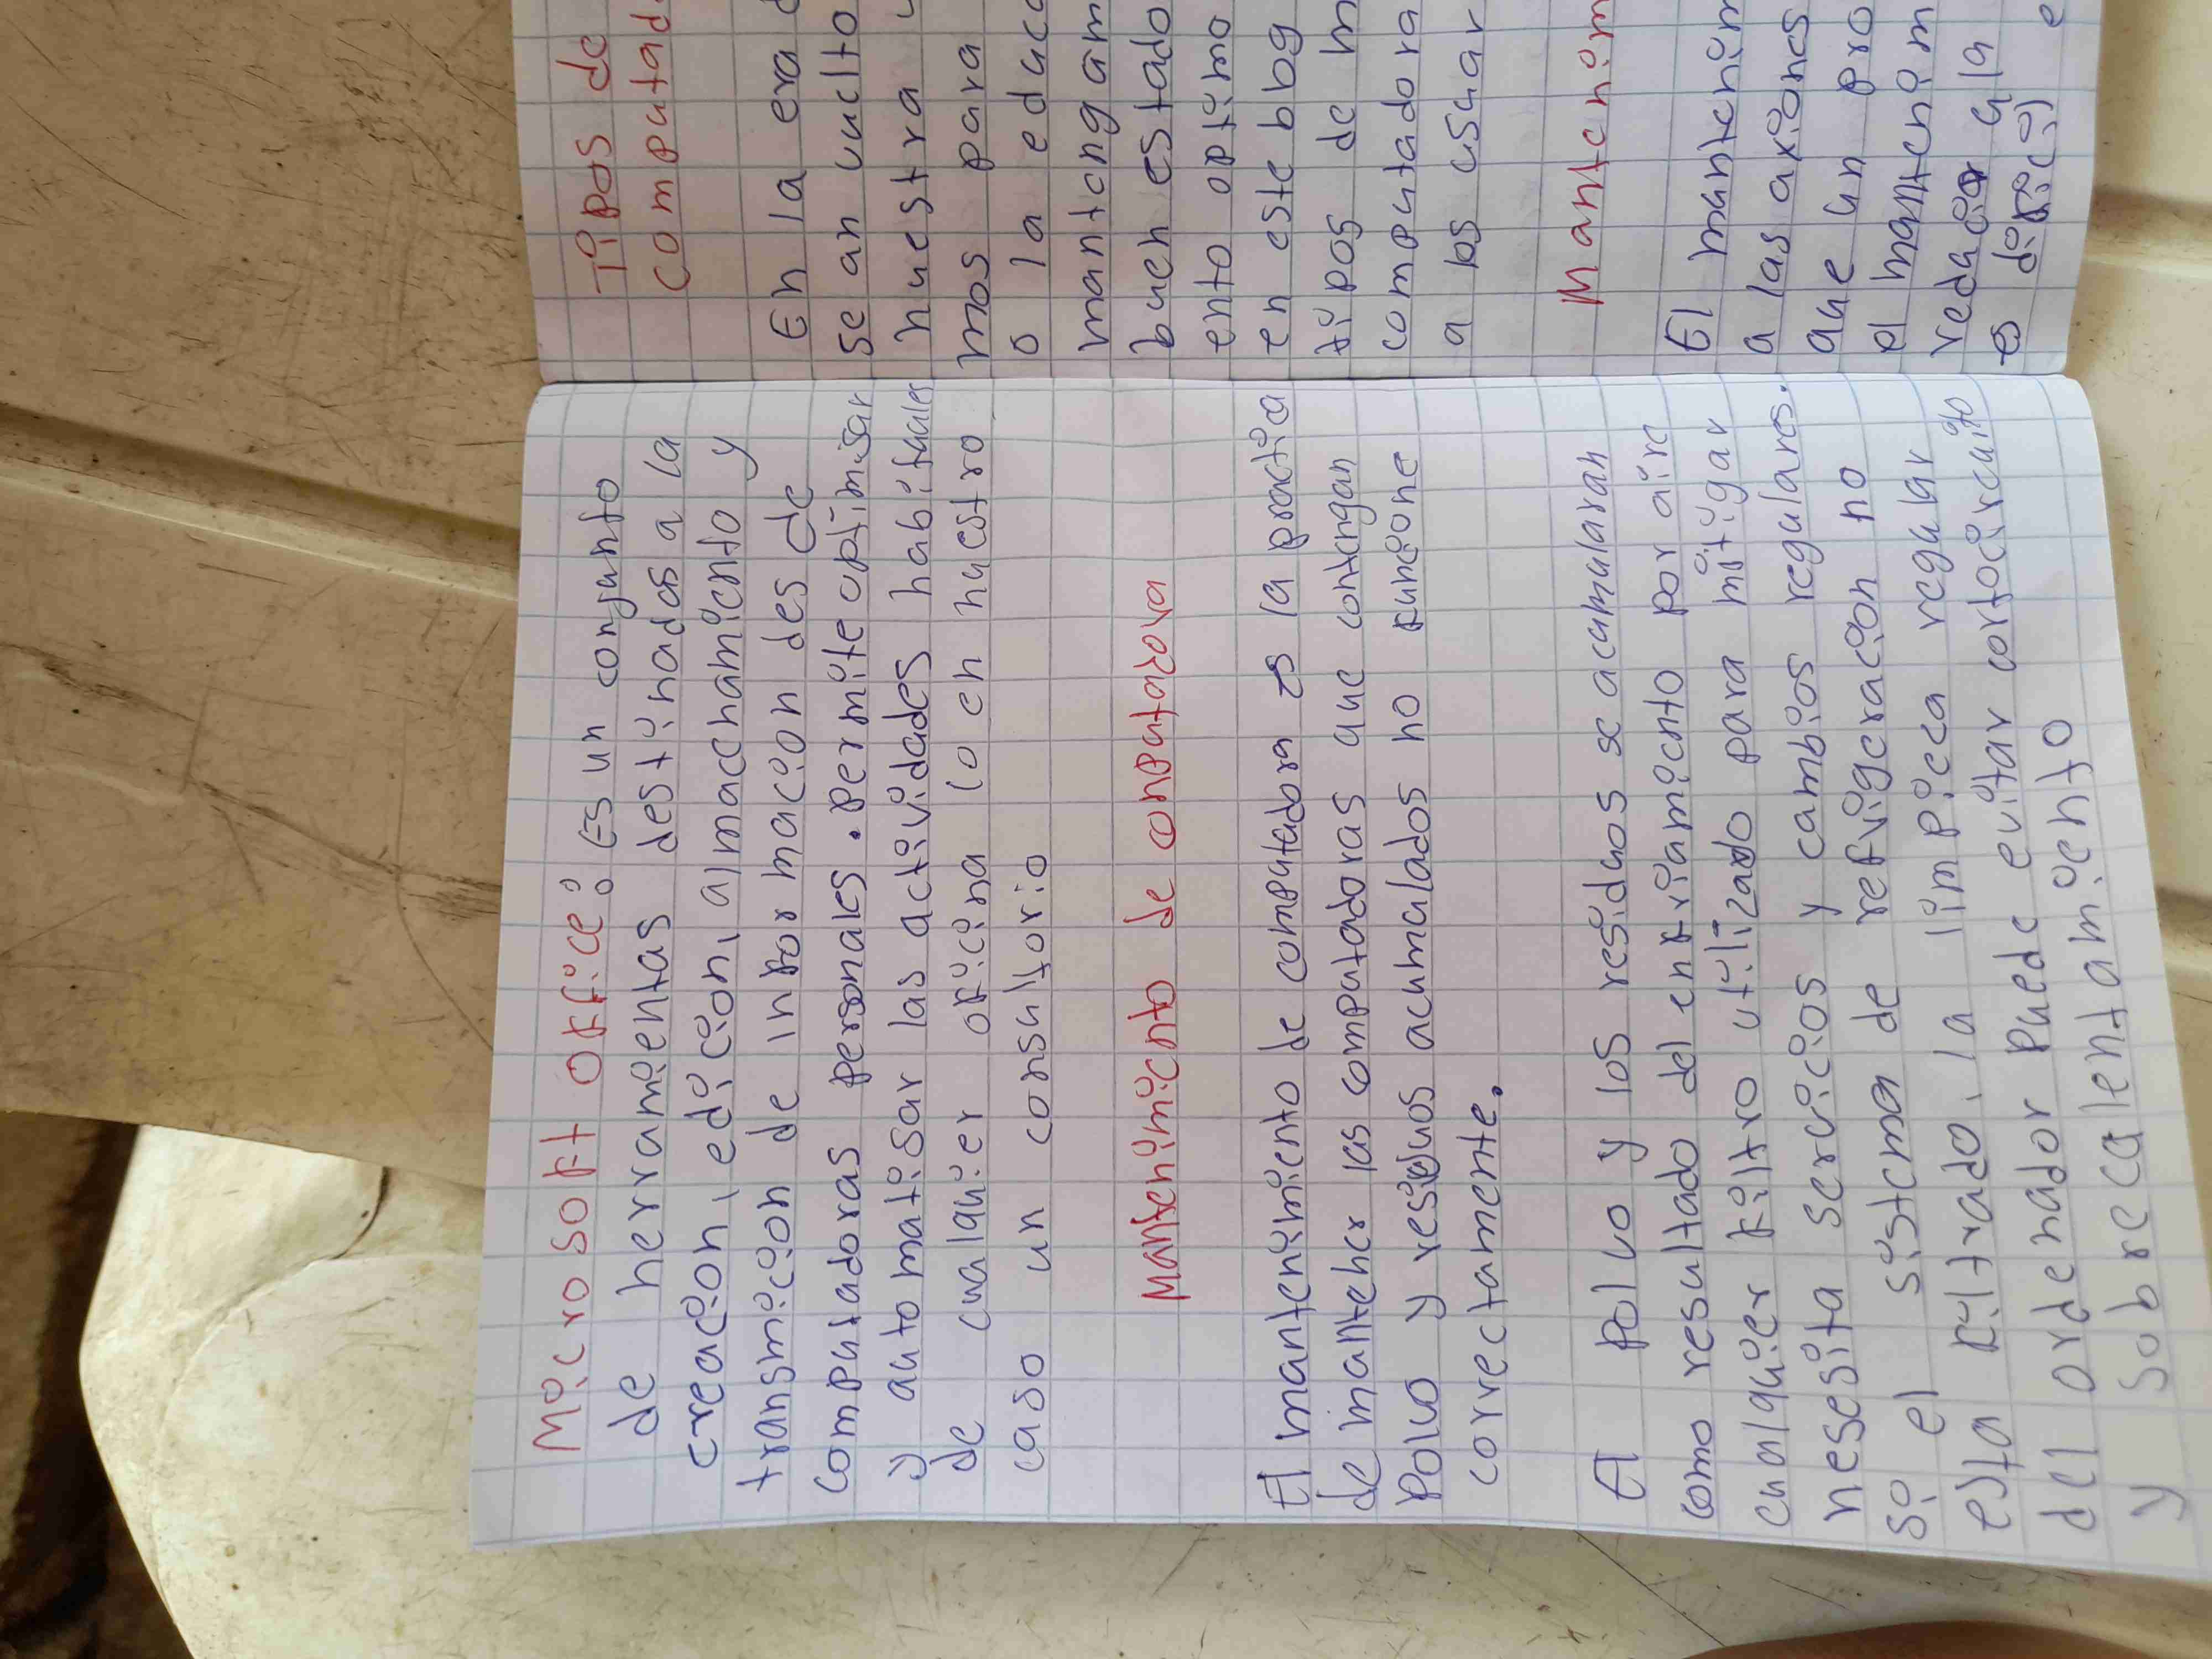 Microsoft Office: Es un conjunto
de herramientas destinados a la
creacion, edicion, almachamiento y
transmicion de informacion des de
computadoras personales. permite optimisar
y automatisar las actividades habituales
de cualquier oficina co en nuestro
caso un consultorio
Mantenimiento de conputadora
El mantenimiento de computadora es la practica
de mantener las computadoras que contengan
Polvo y residuos acumulados no funcione
correctamente.
El polvo y los residuos se acumularan
como resultado del enfriamiento por aire
cualquier filtro utilizado para mitigar
nesesita servicios y cambios regulares.
si el sistema de refrigeracion no
esta filtrado, la limpieca regular
del ordenador puede evitar cortocircuito
y sobrecalentamiento
Tipos de
computad
En la era d
se an vuelto
nuestra
mos para
o la educ
mantengam
buen estado
ento optimo
en este blog
tipos de m
computadora
a los usuar
Mantenim
El mantenim
a las axiones
que un pro
el mantenim
redacior a la
es dificil e